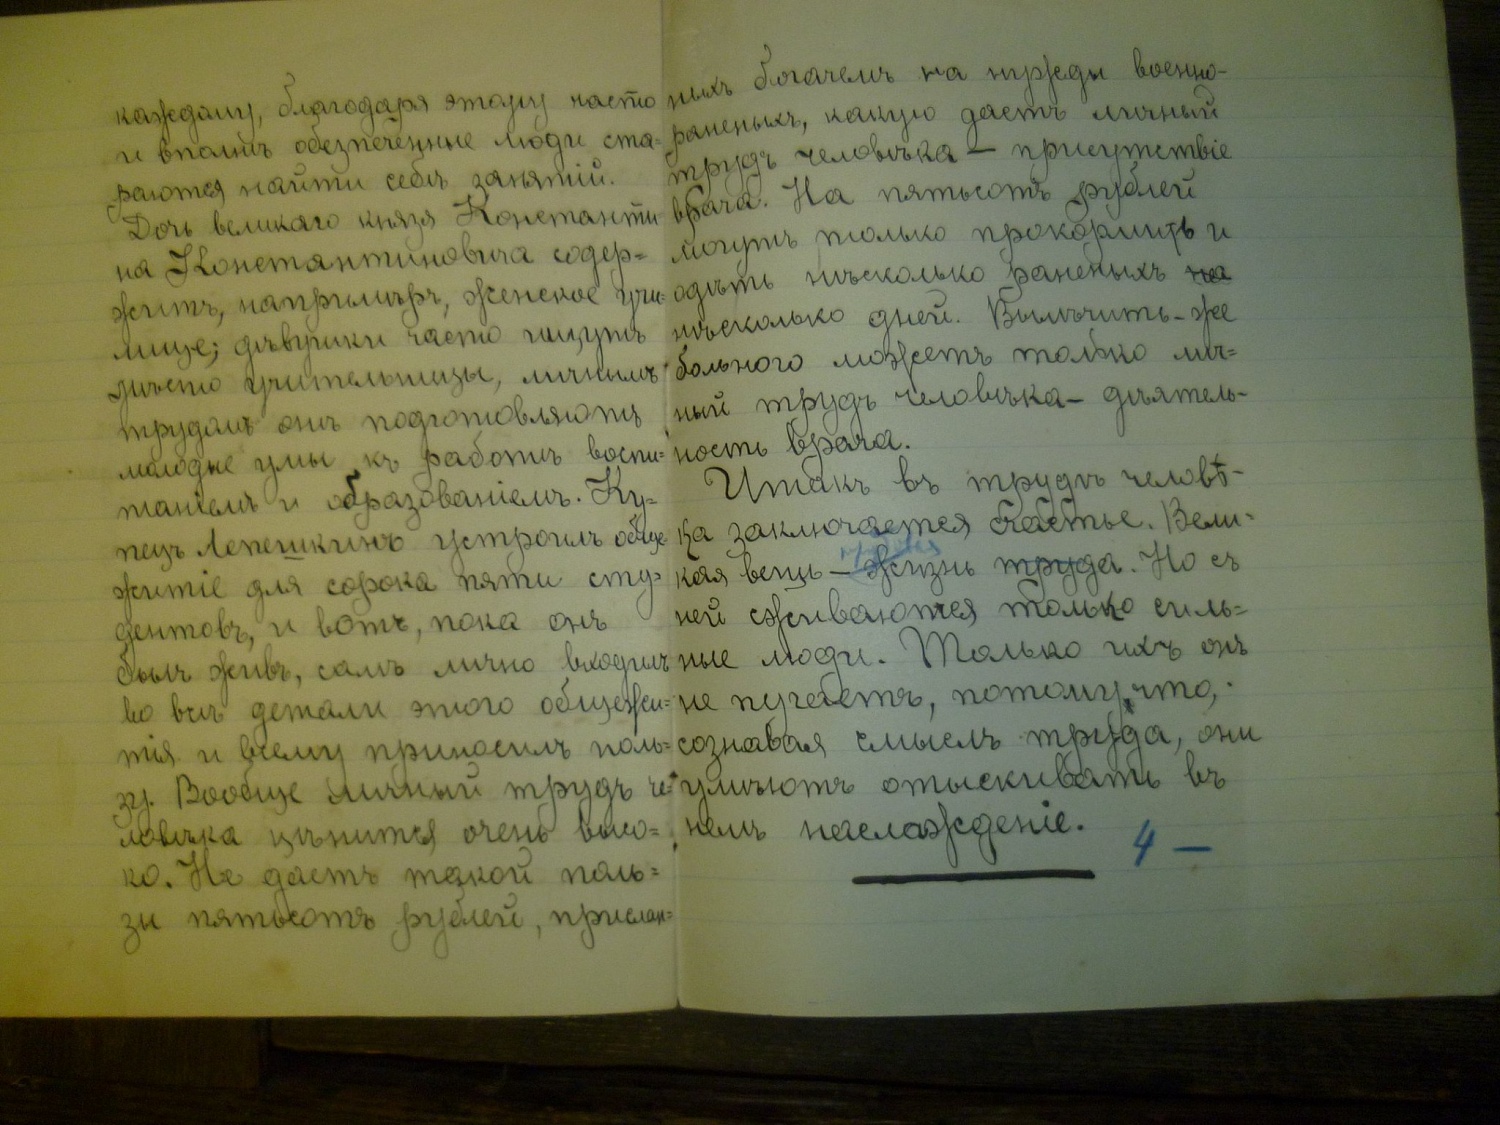 каждому, благодаря этому часто
и вполнѣ обезпеченные люди ста-
раются найти себѣ занятій.
Дочь великаго князя Константи
на Константиновича содер-
житъ, напримѣръ, женское учи-
лище; дѣвушки часто ищутъ
мѣсто учительницы, личнымъ
трудомъ онѣ подготовляютъ
молодые умы къ работѣ воспи-
таніемъ и образованіемъ. Ку-
пецъ Лепешкинъ устроилъ обще
житіе для сорока пяти сту-
дентовъ, и вотъ, пока онъ
былъ живъ, самъ лично входилъ
во всѣ детали этого общежи-
тія и всему приносилъ поль-
зу. Вообще личный трудъ че-
ловѣка цѣнится очень высо-
ко. Не дастъ такой поль-
зы пятьсотъ рублей, прислан-
ныхъ богачемъ на нужды военно-
раненыхъ, какую дастъ личный
трудъ человѣка – присутствіе
врача. На пятьсотъ рублей
могутъ только прокормить и
одѣть нѣсколько раненыхъ на
нѣсколько дней. Вылѣчить-же
больного можетъ только лич-
ный трудъ человѣка – дѣятель-
ность врача.
Итакъ въ трудѣ человѣ-
ка заключается счастье. Вели-
кая вещь – жизнь труда. Но съ
ней сживаются только силь-
ные люди. Только ихъ онъ
не пугаетъ, потому что,
сознавая смыслъ труда, они
умѣютъ отыскивать въ
немъ наслажденіе.
4 –